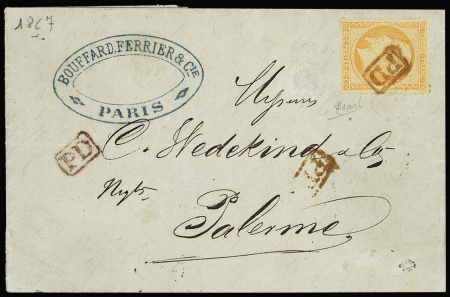 1867
BOUFFARD, FERRIER & CIE
PARIS
PD
Messieurs
C. Wedekind & Co
PD
PD
Palerme